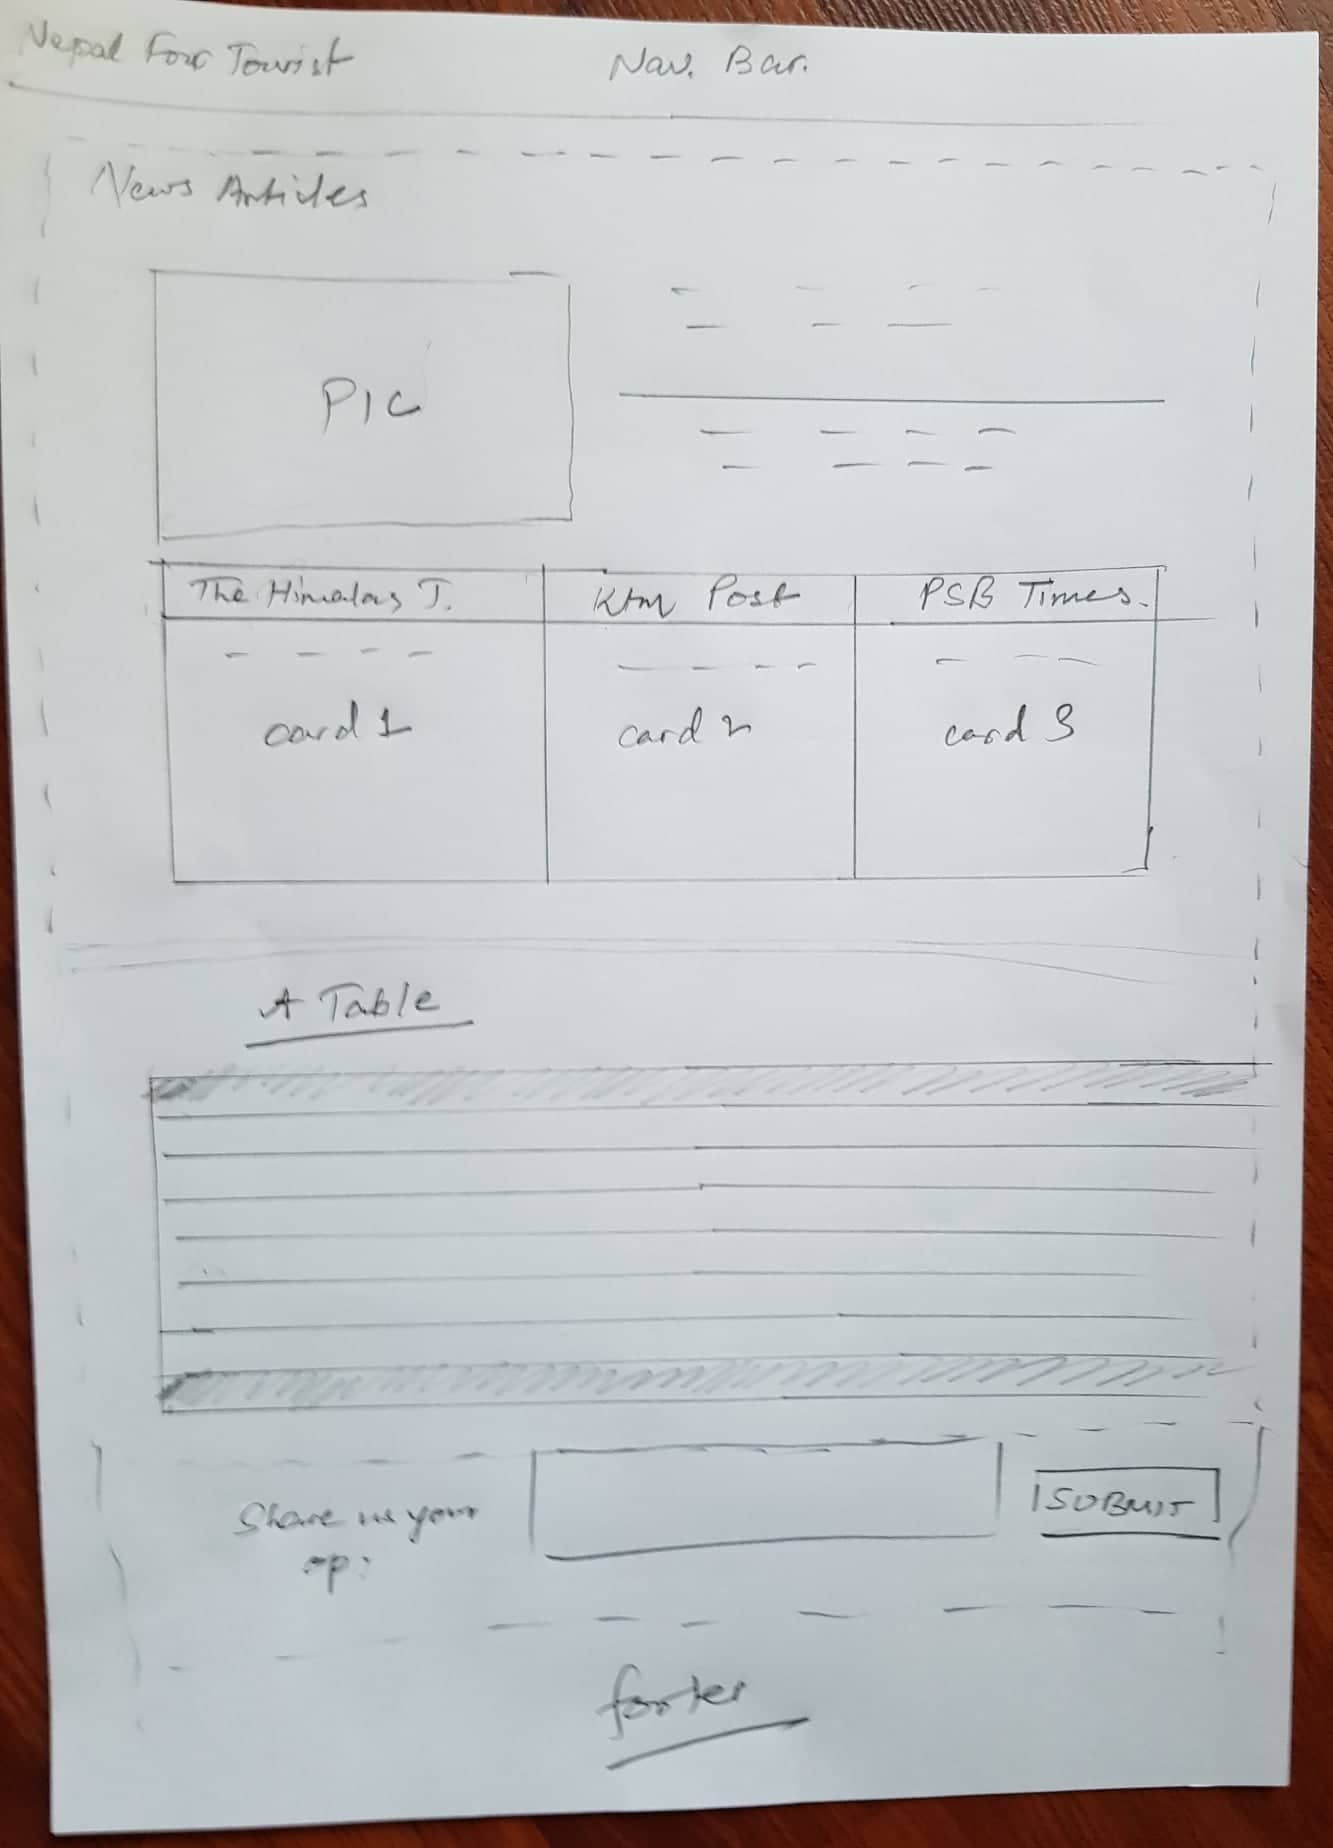 Nepal For Tourist
Nav. Bar.
News Articles
PIC
The Himalas T.
Ktm Post
PSB Times.
card 1
card 2
card 3
A Table
Share us your
op:
SUBMIT
footer